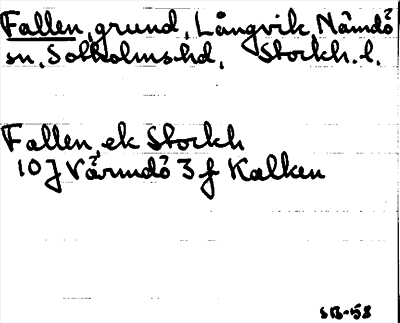 Fallen, grund, Långvik, Nämdö
sn, Sotholms hd, Stockh. l.
Fallen, ek Stockh
10J Värmdö 3 f Kalken
SB-58